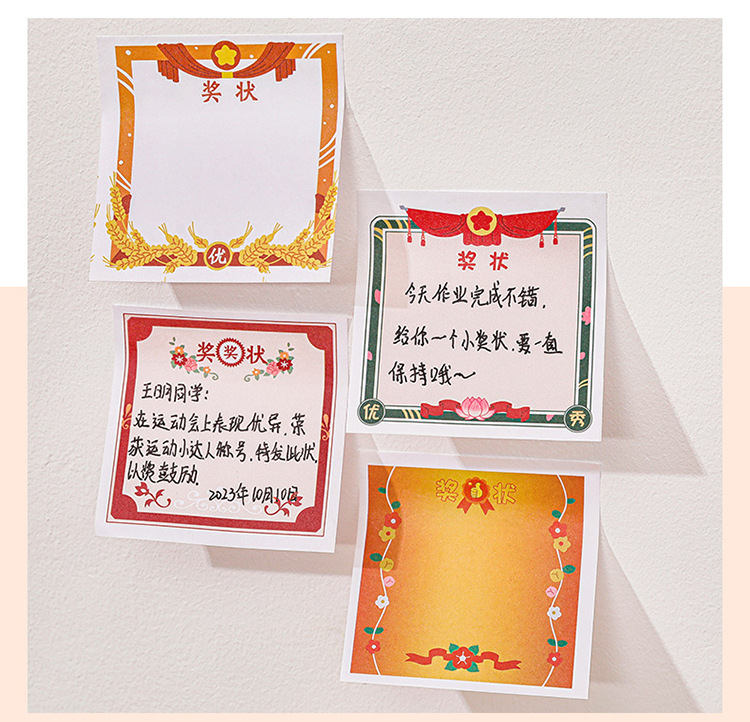 奖状
优
奖状
今天作业完成不错,
给你一个小奖状,要一直
保持哦~
优 秀
奖奖状
王明同学:
在运动会上表现优异,荣
获运动小达人称号,特发此状,
以资鼓励.
2023年10月10日
奖状